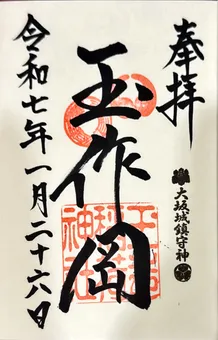 奉拝
大坂城鎮守神
玉作岡
令和七年一月二十六日